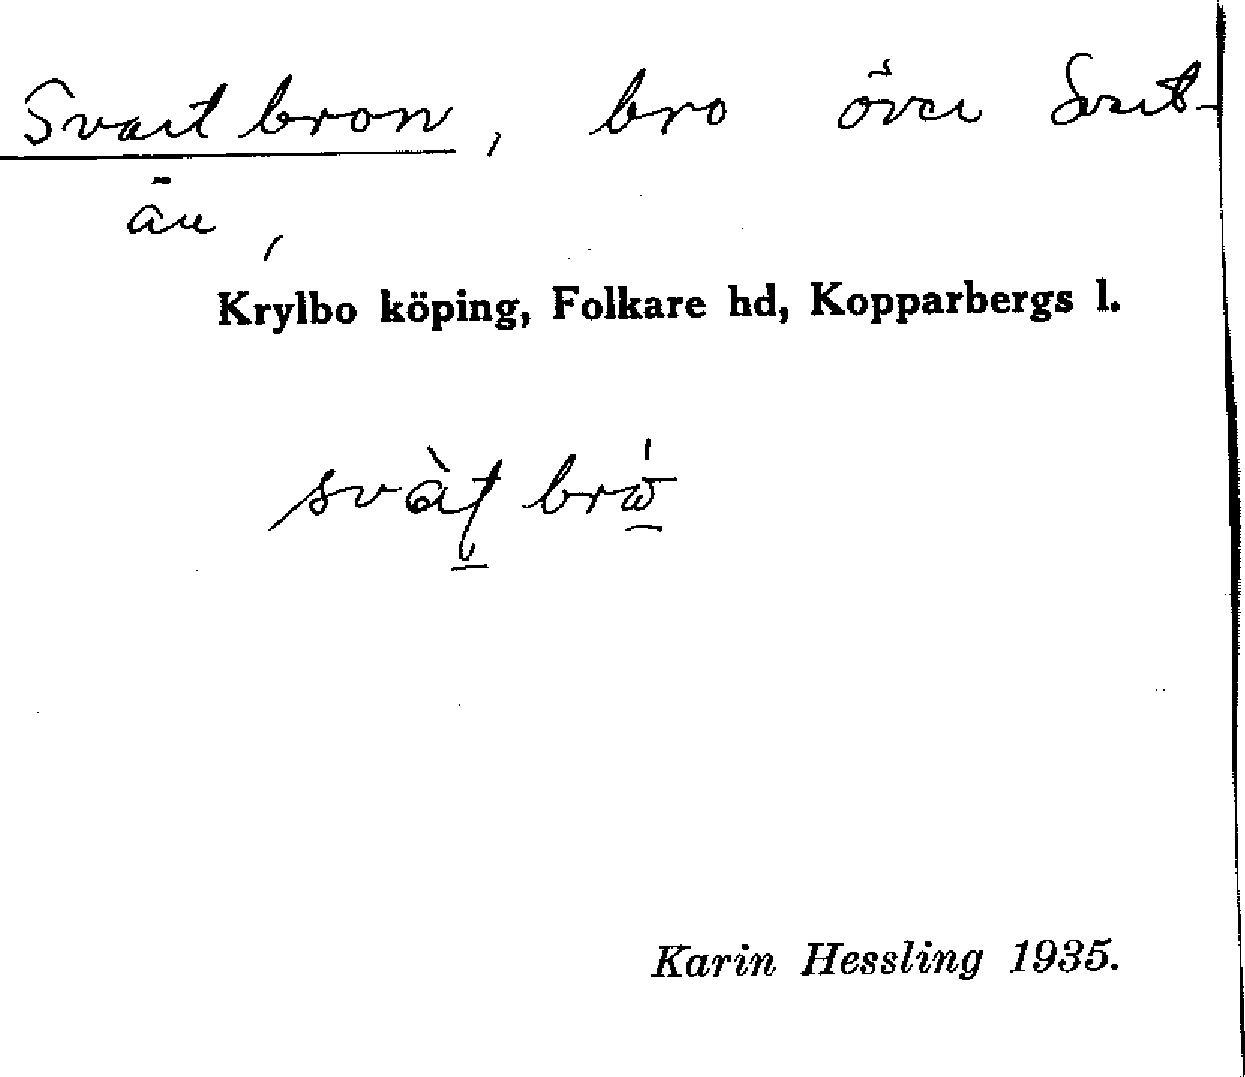 Svartbron, bro över Svart-
ån,
Krylbo köping, Folkare hd, Kopparbergs l.
Karin Hessling 1935.